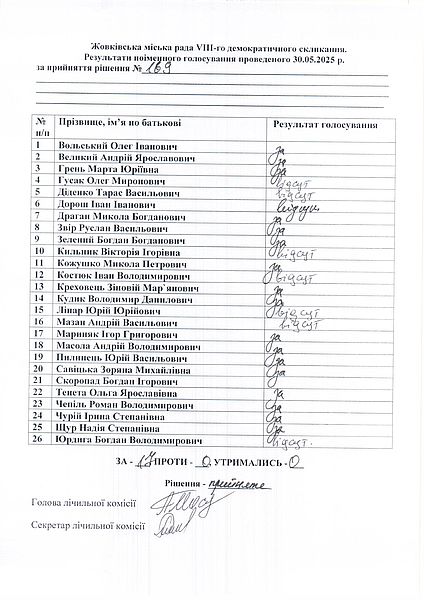 Жовківська міська рада VIII-го демократичного скликання.
Результати поіменного голосування проведеного 30.05.2025 р.
за прийняття рішення № 169
№ п/п Прізвище, ім’я по батькові Результат голосування
1 Вольський Олег Іванович за
2 Великий Андрій Ярославович за
3 Грень Марта Юріївна за
4 Гусак Олег Миронович відсут
5 Діденко Тарас Васильович відсут
6 Дорош Іван Іванович
7 Драган Микола Богданович за
8 Звір Руслан Васильович за
9 Зелений Богдан Богданович за
10 Кильник Вікторія Ігорівна відсут
11 Кожушко Микола Петрович за
12 Костюк Іван Володимирович відсут
13 Креховець Зіновій Мар`янович за
14 Кудик Володимир Данилович за
15 Ліпар Юрій Юрійович відсут
16 Мазан Андрій Васильович відсут
17 Мариняк Ігор Григорович за
18 Масола Андрій Володимирович за
19 Пилипець Юрій Васильович за
20 Савіцька Зоряна Михайлівна за
21 Скоропад Богдан Ігорович
22 Тенета Ольга Ярославівна за
23 Чепіль Роман Володимирович за
24 Чурій Ірина Степанівна за
25 Щур Надія Степанівна за
26 Юрдига Богдан Володимирович відсут.
ЗА - 17 ПРОТИ - 0, УТРИМАЛИСЬ - 0
Рішення - прийнято
Голова лічильної комісії
Секретар лічильної комісії